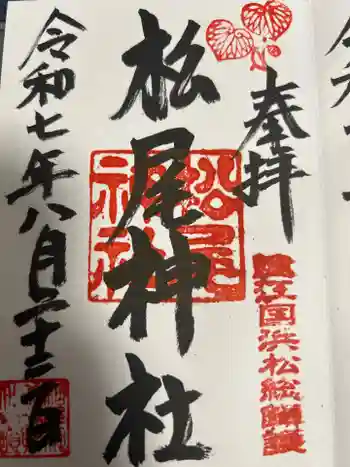 奉拝
遠江国浜松総鎮護
松尾神社
松尾
神社
令和七年八月二十三日